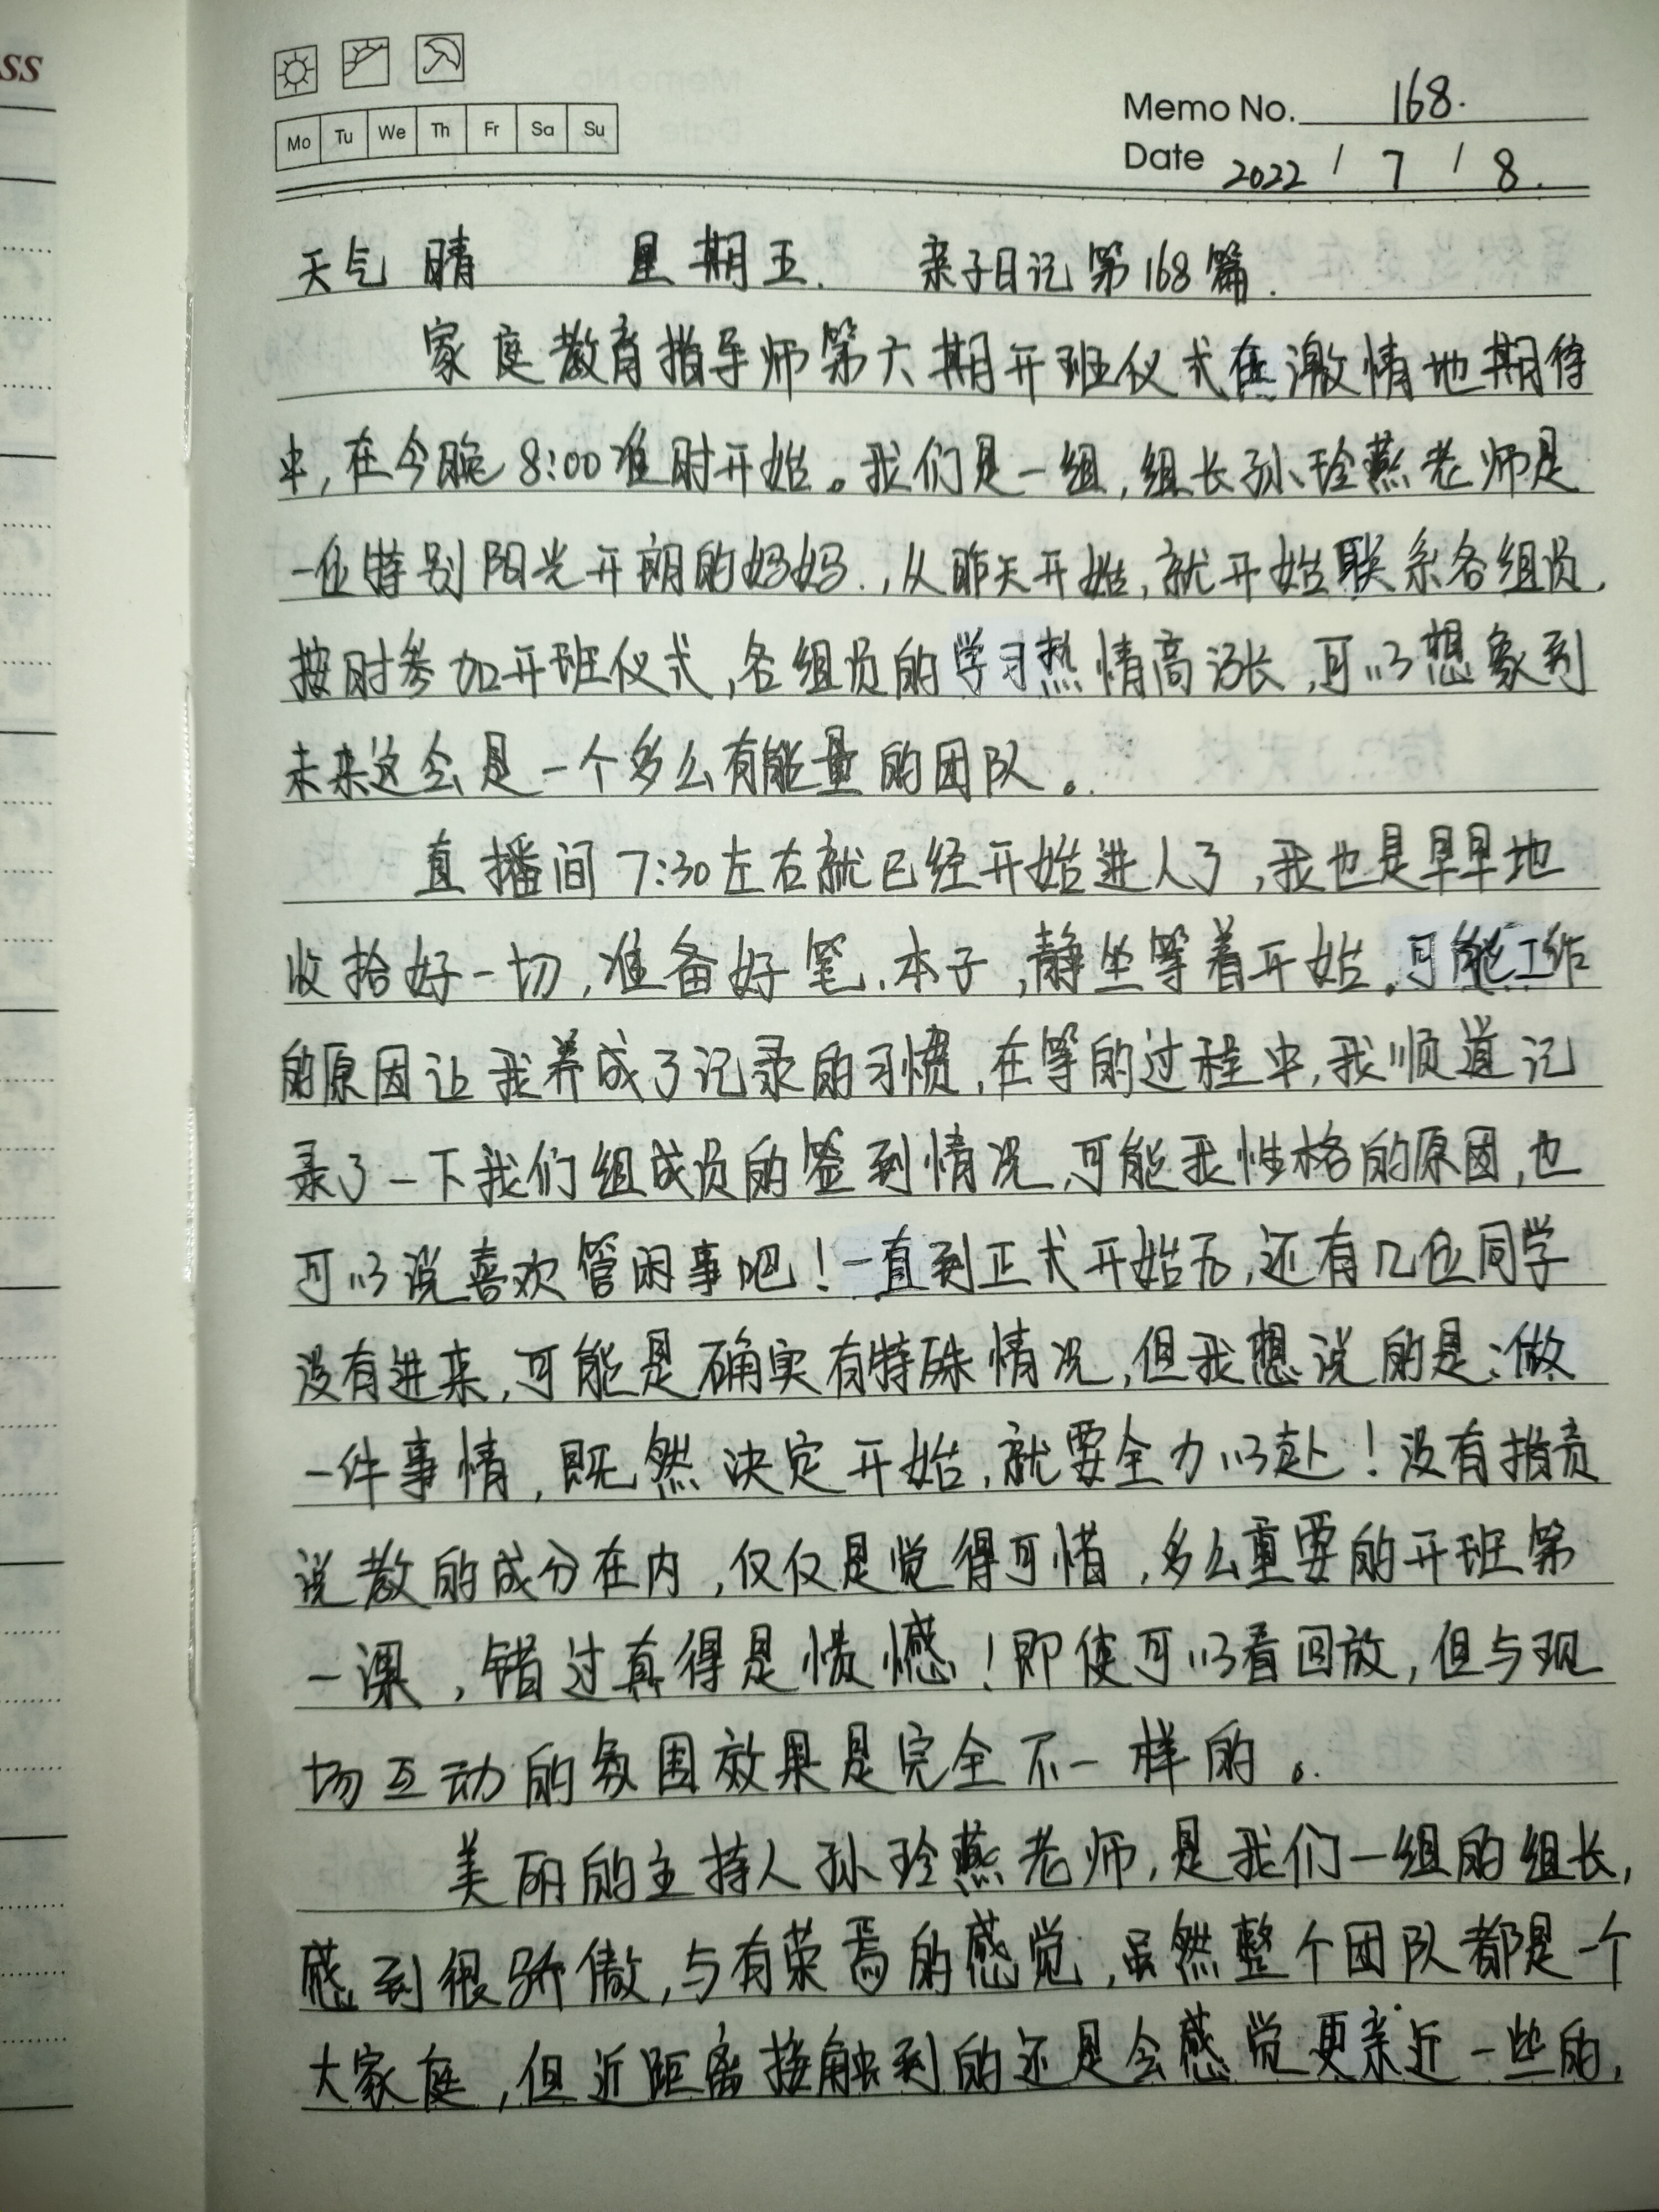 ss
Mo Tu We Th Fr Sa Su
Memo No. 168.
Date 2022 / 7 / 8.
天气 晴 星期五. 亲子日记第168篇.
家庭教育指导师第六期开班仪式在激情地期待
中,在今晚8:00准时开始。我们是一组,组长孙玲燕老师是
一位特别阳光开朗的妈妈.,从昨天开始,就开始联系各组员,
按时参加开班仪式,各组员的学习热情高涨,可以想象到
未来这会是一个多么有能量的团队。
直播间7:30左右就已经开始进人了,我也是早早地
收拾好一切,准备好笔、本子,静坐等着开始。可能工作
的原因让我养成了记录的习惯,在等的过程中,我顺道记
录了一下我们组成员的签到情况,可能我性格的原因,也
可以说喜欢管闲事吧!一直到正式开始后,还有几位同学
没有进来,可能是确实有特殊情况,但我想说的是:做
一件事情,既然决定开始,就要全力以赴!没有指责
说教的成分在内,仅仅是觉得可惜,多么重要的开班第
一课,错过真得是愦憾!即使可以看回放,但与现
场互动的氛围效果是完全不一样的。
美丽的主持人孙玲燕老师,是我们一组的组长,
感到很骄傲,与有荣焉的感觉,虽然整个团队都是一个
大家庭,但近距离接触到的还是会感觉更亲近一些的,